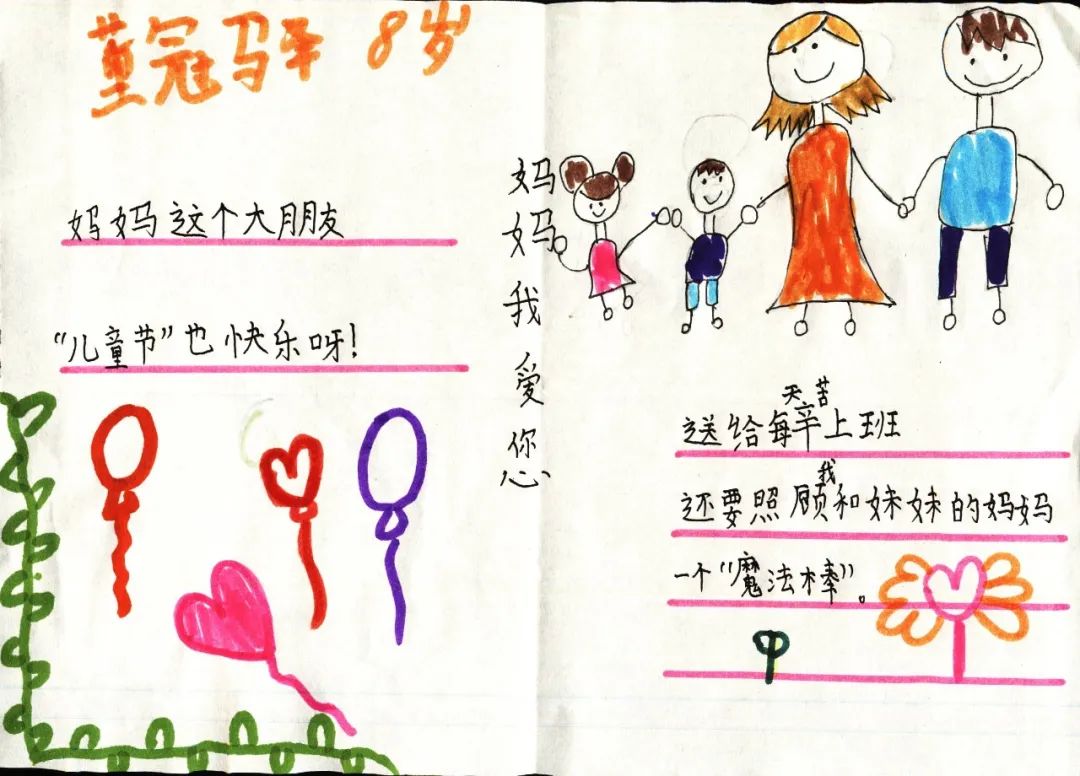 董冠驿 8岁
妈妈这个大朋友
“儿童节”也快乐呀!
妈妈我爱您
送给每天辛苦上班
还要照顾我和妹妹的妈妈
一个“魔法棒”。